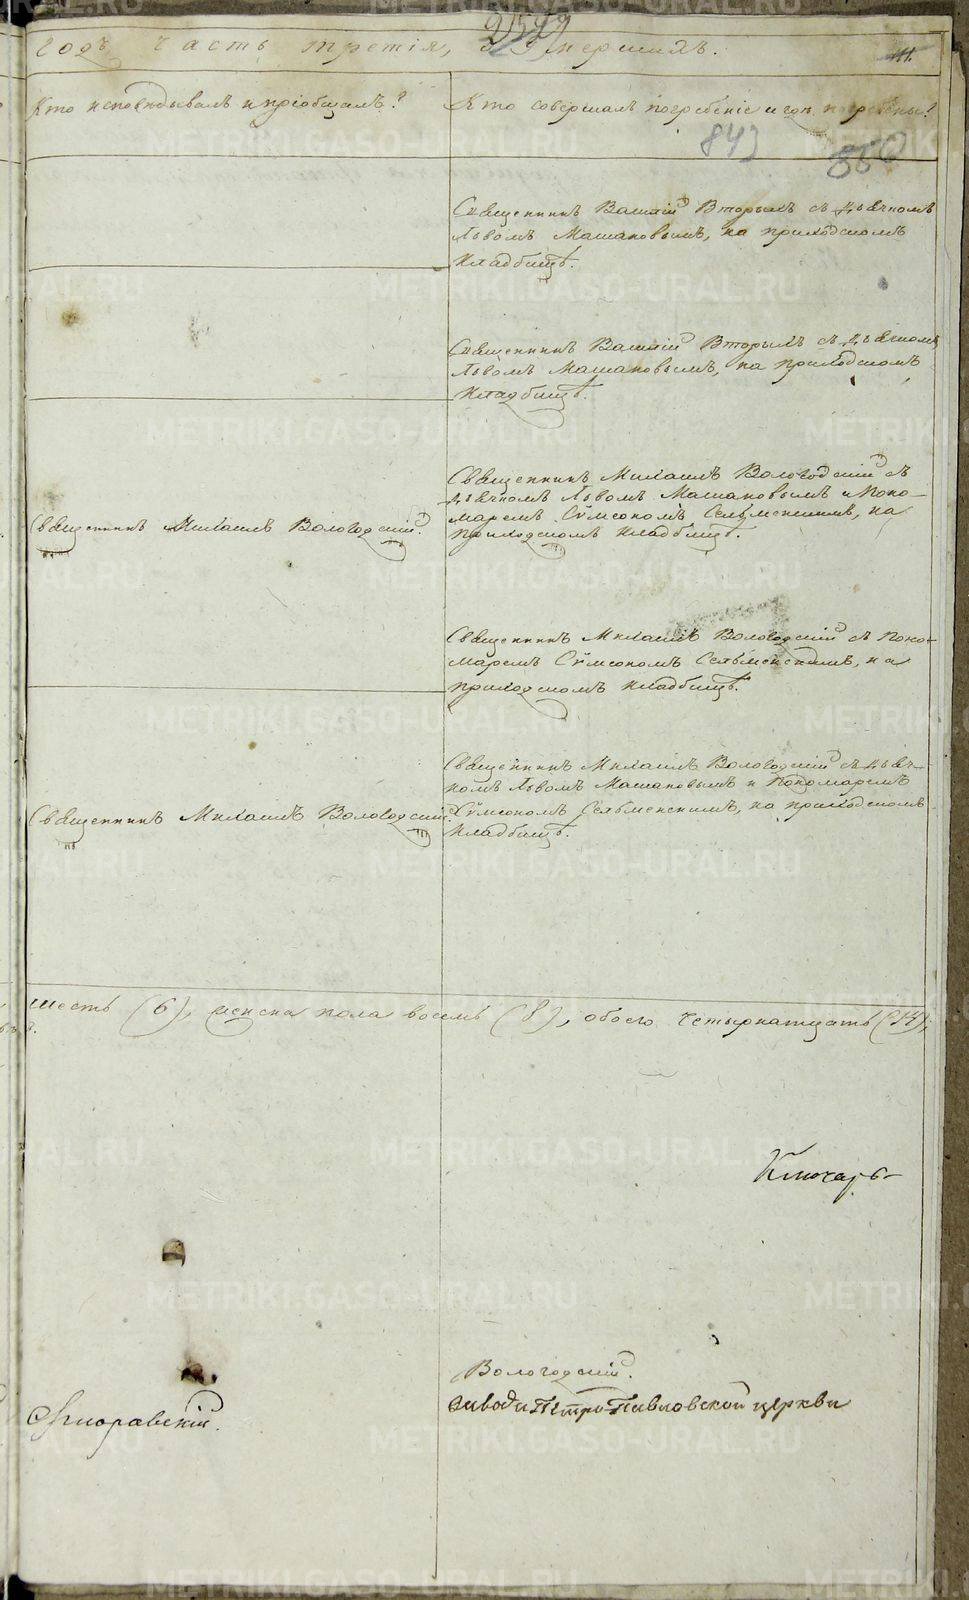 годъ, часть третія, о умершихъ.
11.
Кто исповѣдывалъ и пріобщалъ?
Кто совершалъ погребеніе и гдѣ погребены?
843
850
Священникъ Василій Вторыхъ съ дьячкомъ
Львомъ Машановымъ, на приходскомъ
кладбищѣ.
Священникъ Василій Вторыхъ съ дьячкомъ
Львомъ Машановымъ, на приходскомъ
кладбищѣ.
Священникъ Михаилъ Вологодскій.
Священникъ Михаилъ Вологодскій съ
дьячкомъ Львомъ Машановымъ и Поно-
маремъ Сѵмеономъ Сельменскимъ, на
приходскомъ кладбищѣ.
Священникъ Михаилъ Вологодскій съ Поно-
маремъ Сѵмеономъ Сельменскимъ, на
приходскомъ кладбищѣ.
Священникъ Михаилъ Вологодскій.
Священникъ Михаилъ Вологодскій съ дьяч-
комъ Львомъ Машановымъ и Пономаремъ
Сѵмеономъ Сельменскимъ, на приходскомъ
кладбищѣ.
шесть (6), женска пола восемь (8), обоего четырнатцать (14);
Ключарь
Вологодскій.
завода Петро-Павловской церкви
METRIKI.GASO-URAL.RU